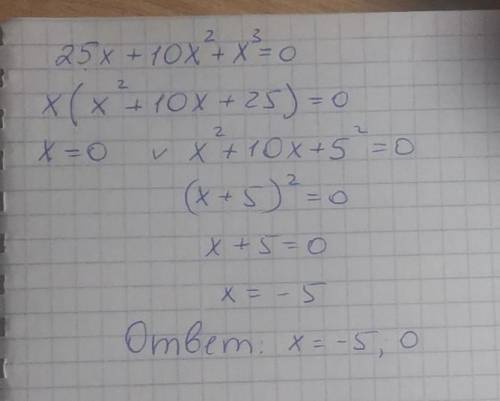 25x + 10x² + x³ = 0
x(x² + 10x + 25) = 0
x = 0 ∨ x² + 10x + 5² = 0
(x + 5)² = 0
x + 5 = 0
x = -5
Ответ: x = -5, 0